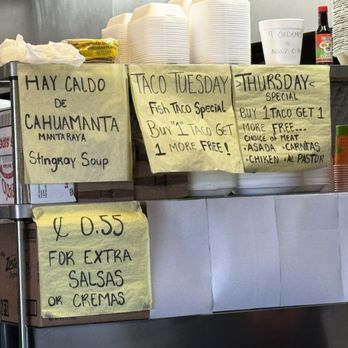 HAY CALDO
DE
CAHUAMANTA
MANTA RAYA
Stingray Soup
TACO TUESDAY
Fish Taco Special
Buy "1" TACO GET
1 MORE FREE!
>THURSDAY<
SPECIAL
BUY 1 TACO GET 1
MORE FREE...
CHOICE OF MEAT
•ASADA •CARNITAS
•CHIKEN •AL PASTOR
¢ 0.55
FOR EXTRA
SALSAS
OR CREMAS